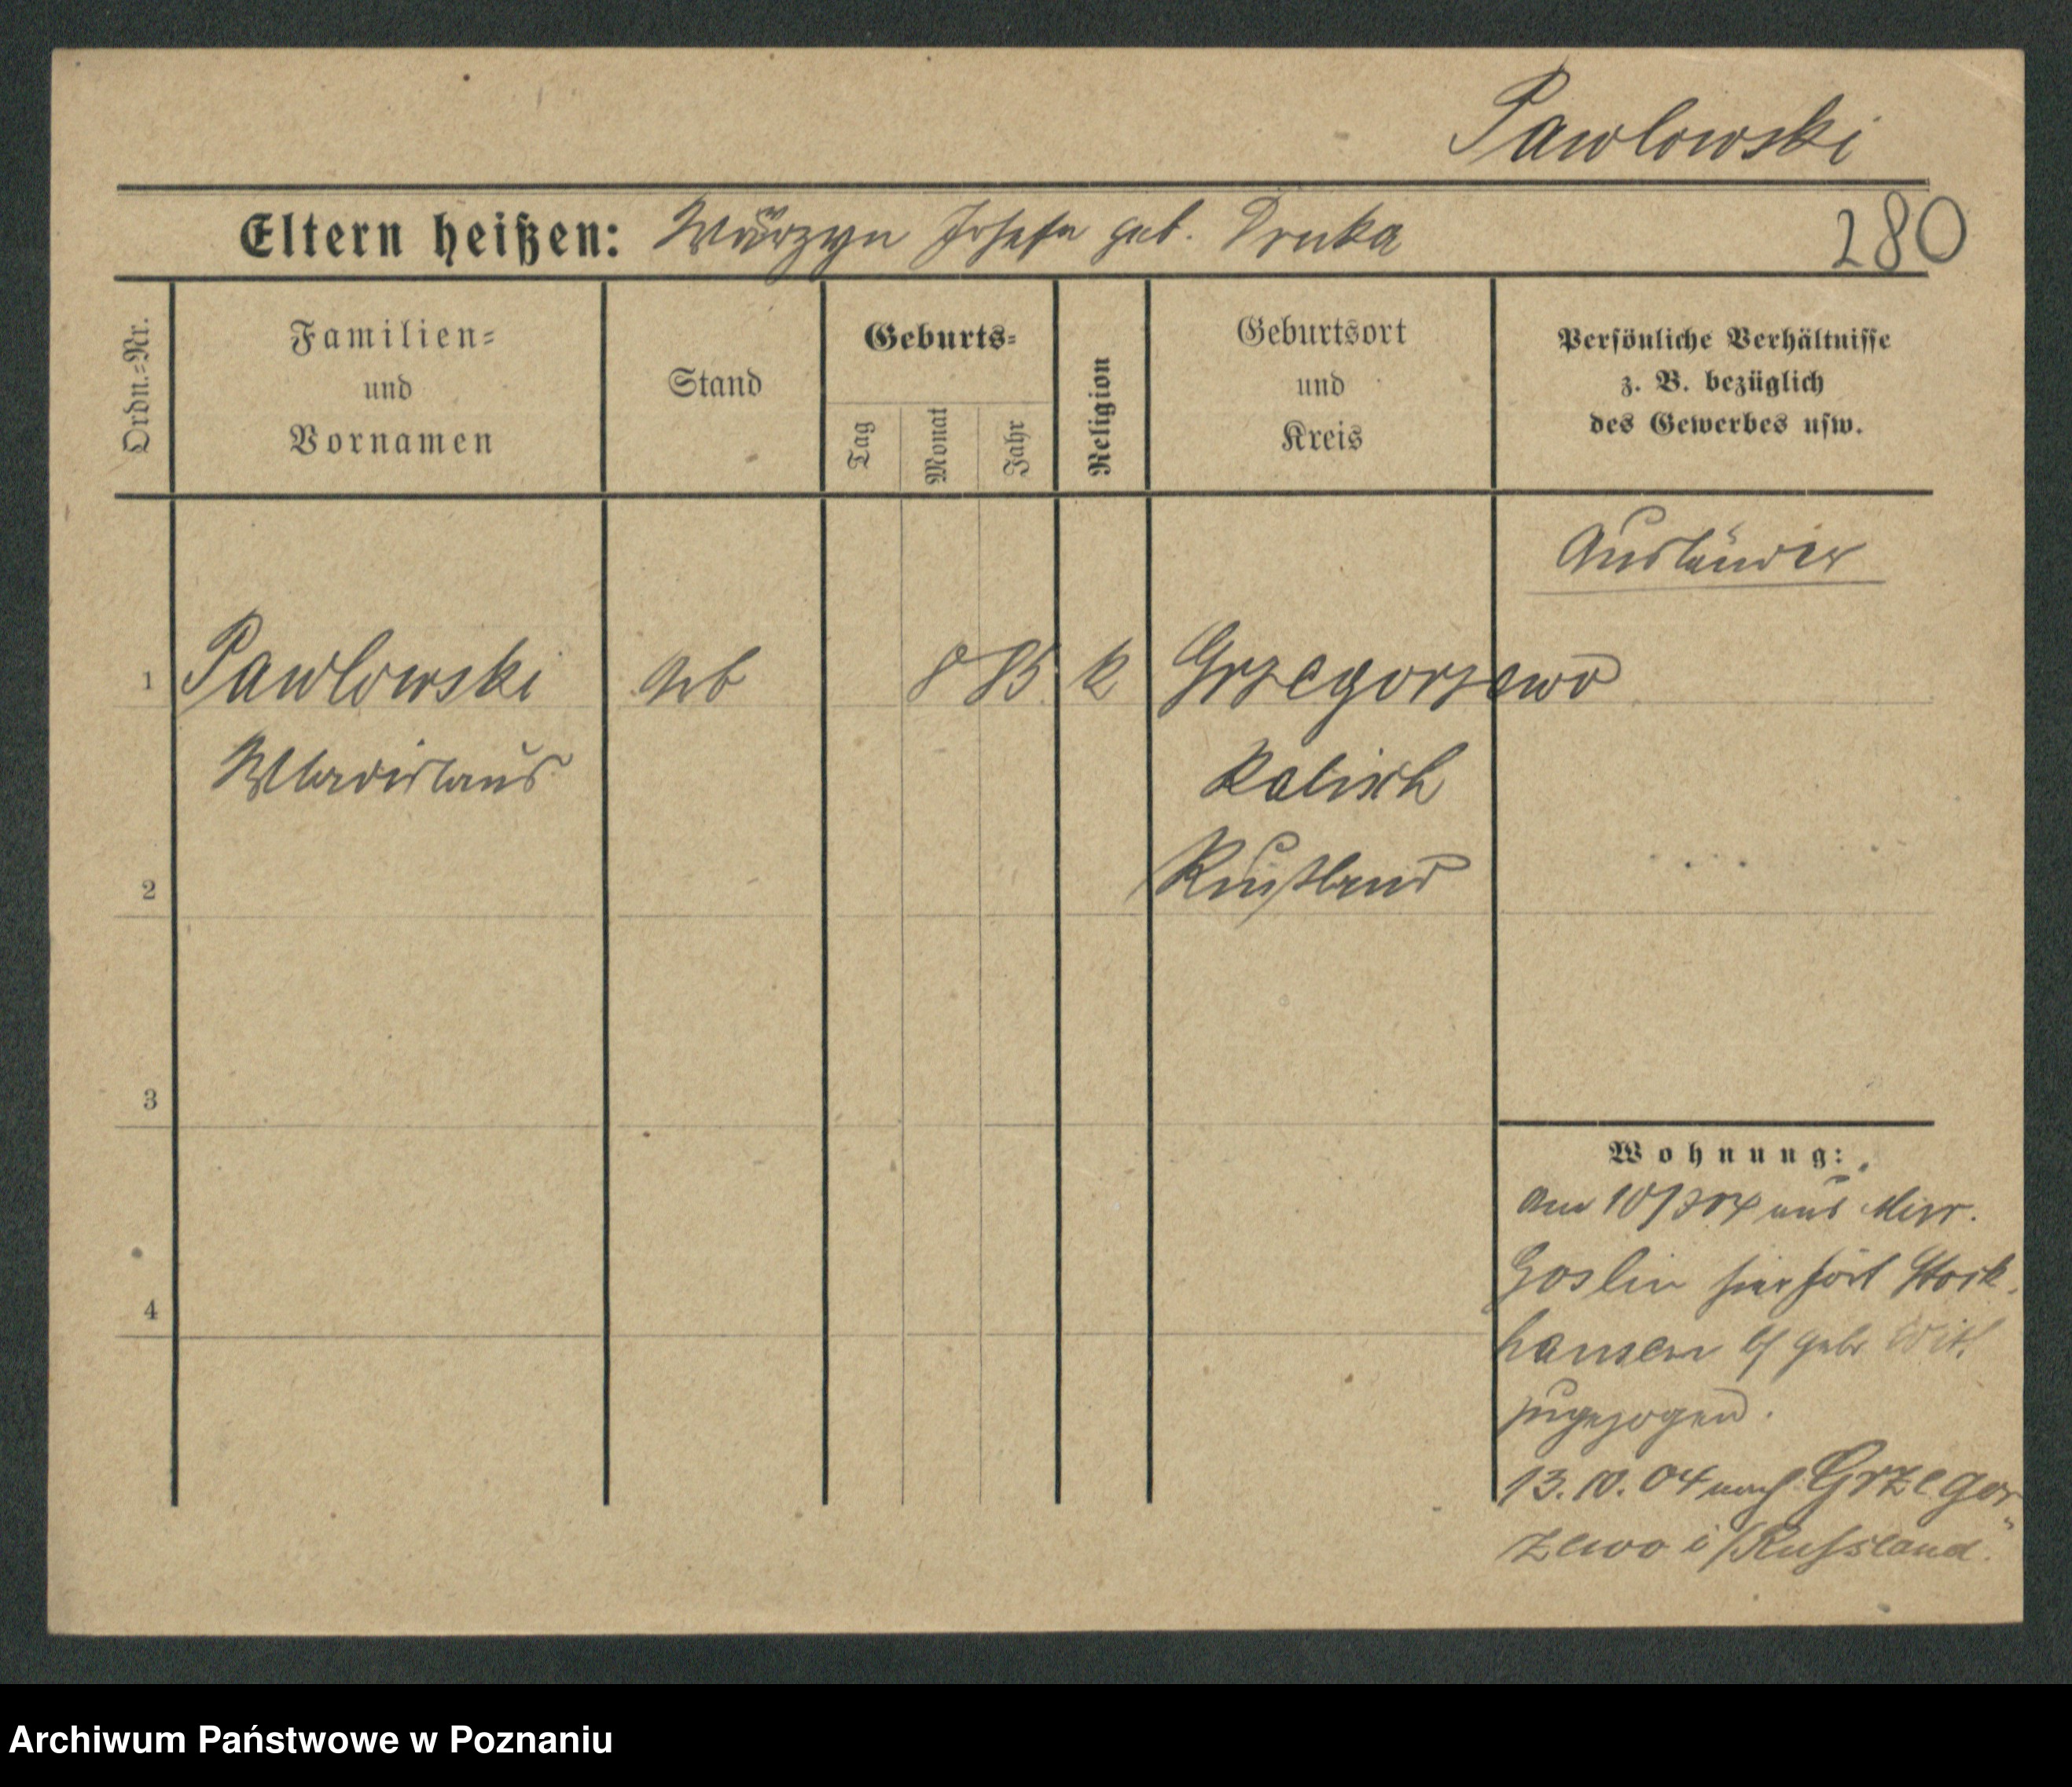 Pawlowski
Eltern heißen: Josefa geb. Druka
280
Ordn.=Nr.
Familien=
und
Vornamen
Stand
Geburts=
Tag
Monat
Jahr
Religion
Geburtsort
und
Kreis
Persönliche Verhältnisse
z. B. bezüglich
des Gewerbes usw.
Ausländer
1 Pawlowski Arb 8 85 k Grzegorzewo
Wladislaus Kalisch
2 Rußland
3
4
Wohnung:
am aus Mur.
Goslin hierher Stock
hausen geb Wit.
zugezogen.
13.10.04 nach Grzegor
zewo i/Russland.
Archiwum Państwowe w Poznaniu